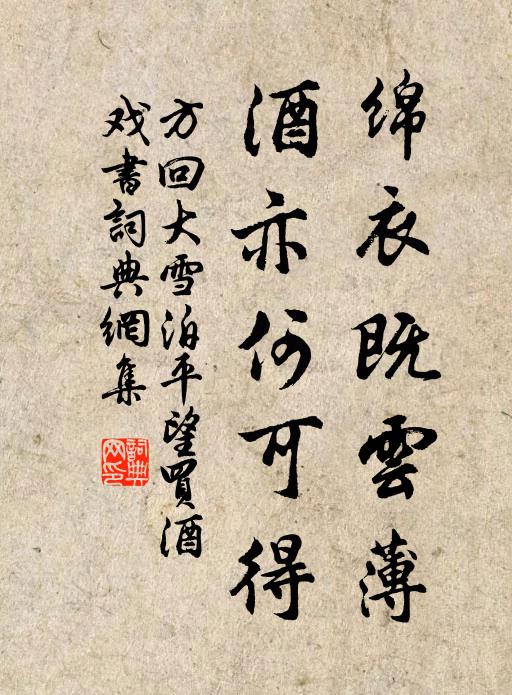 绵衣既雲薄
酒亦何可得
方回大雪泊平望買酒
戏書詞典網集
詞典網印